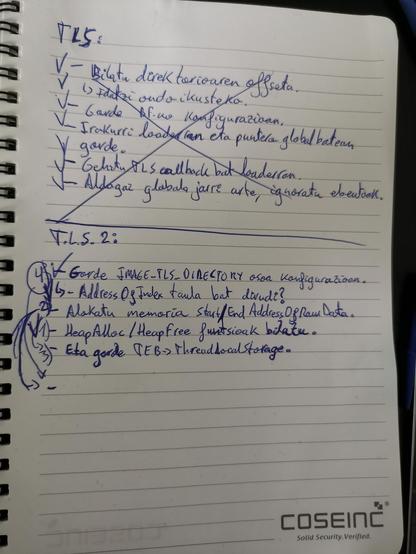 TLS:
✓ - Bilatu direktorioaren offseta.
↳ Idatzi ondo ikusteko.
✓ - Gorde konfigurazioan.
✓ - Irakurri loaderran eta puntera global batean
✓ gorde.
✓ - Gehitu TLS callback bat loaderran.
✓ - Aldagai globala jarri arte, ignoratu ebentoak.
T.L.S. 2:
4 - Gorde IMAGE_TLS_DIRECTORY osoa konfigurazioan.
↳ - AddressOfIndex taula bat dirudi?
2 - Alokatu memoria Start/End AddressOfRawData.
1 - HeapAlloc/HeapFree funtsioak bilatu.
3 - Eta gorde TEB->ThreadLocalStorage.
-
COSEINC
Solid Security. Verified.